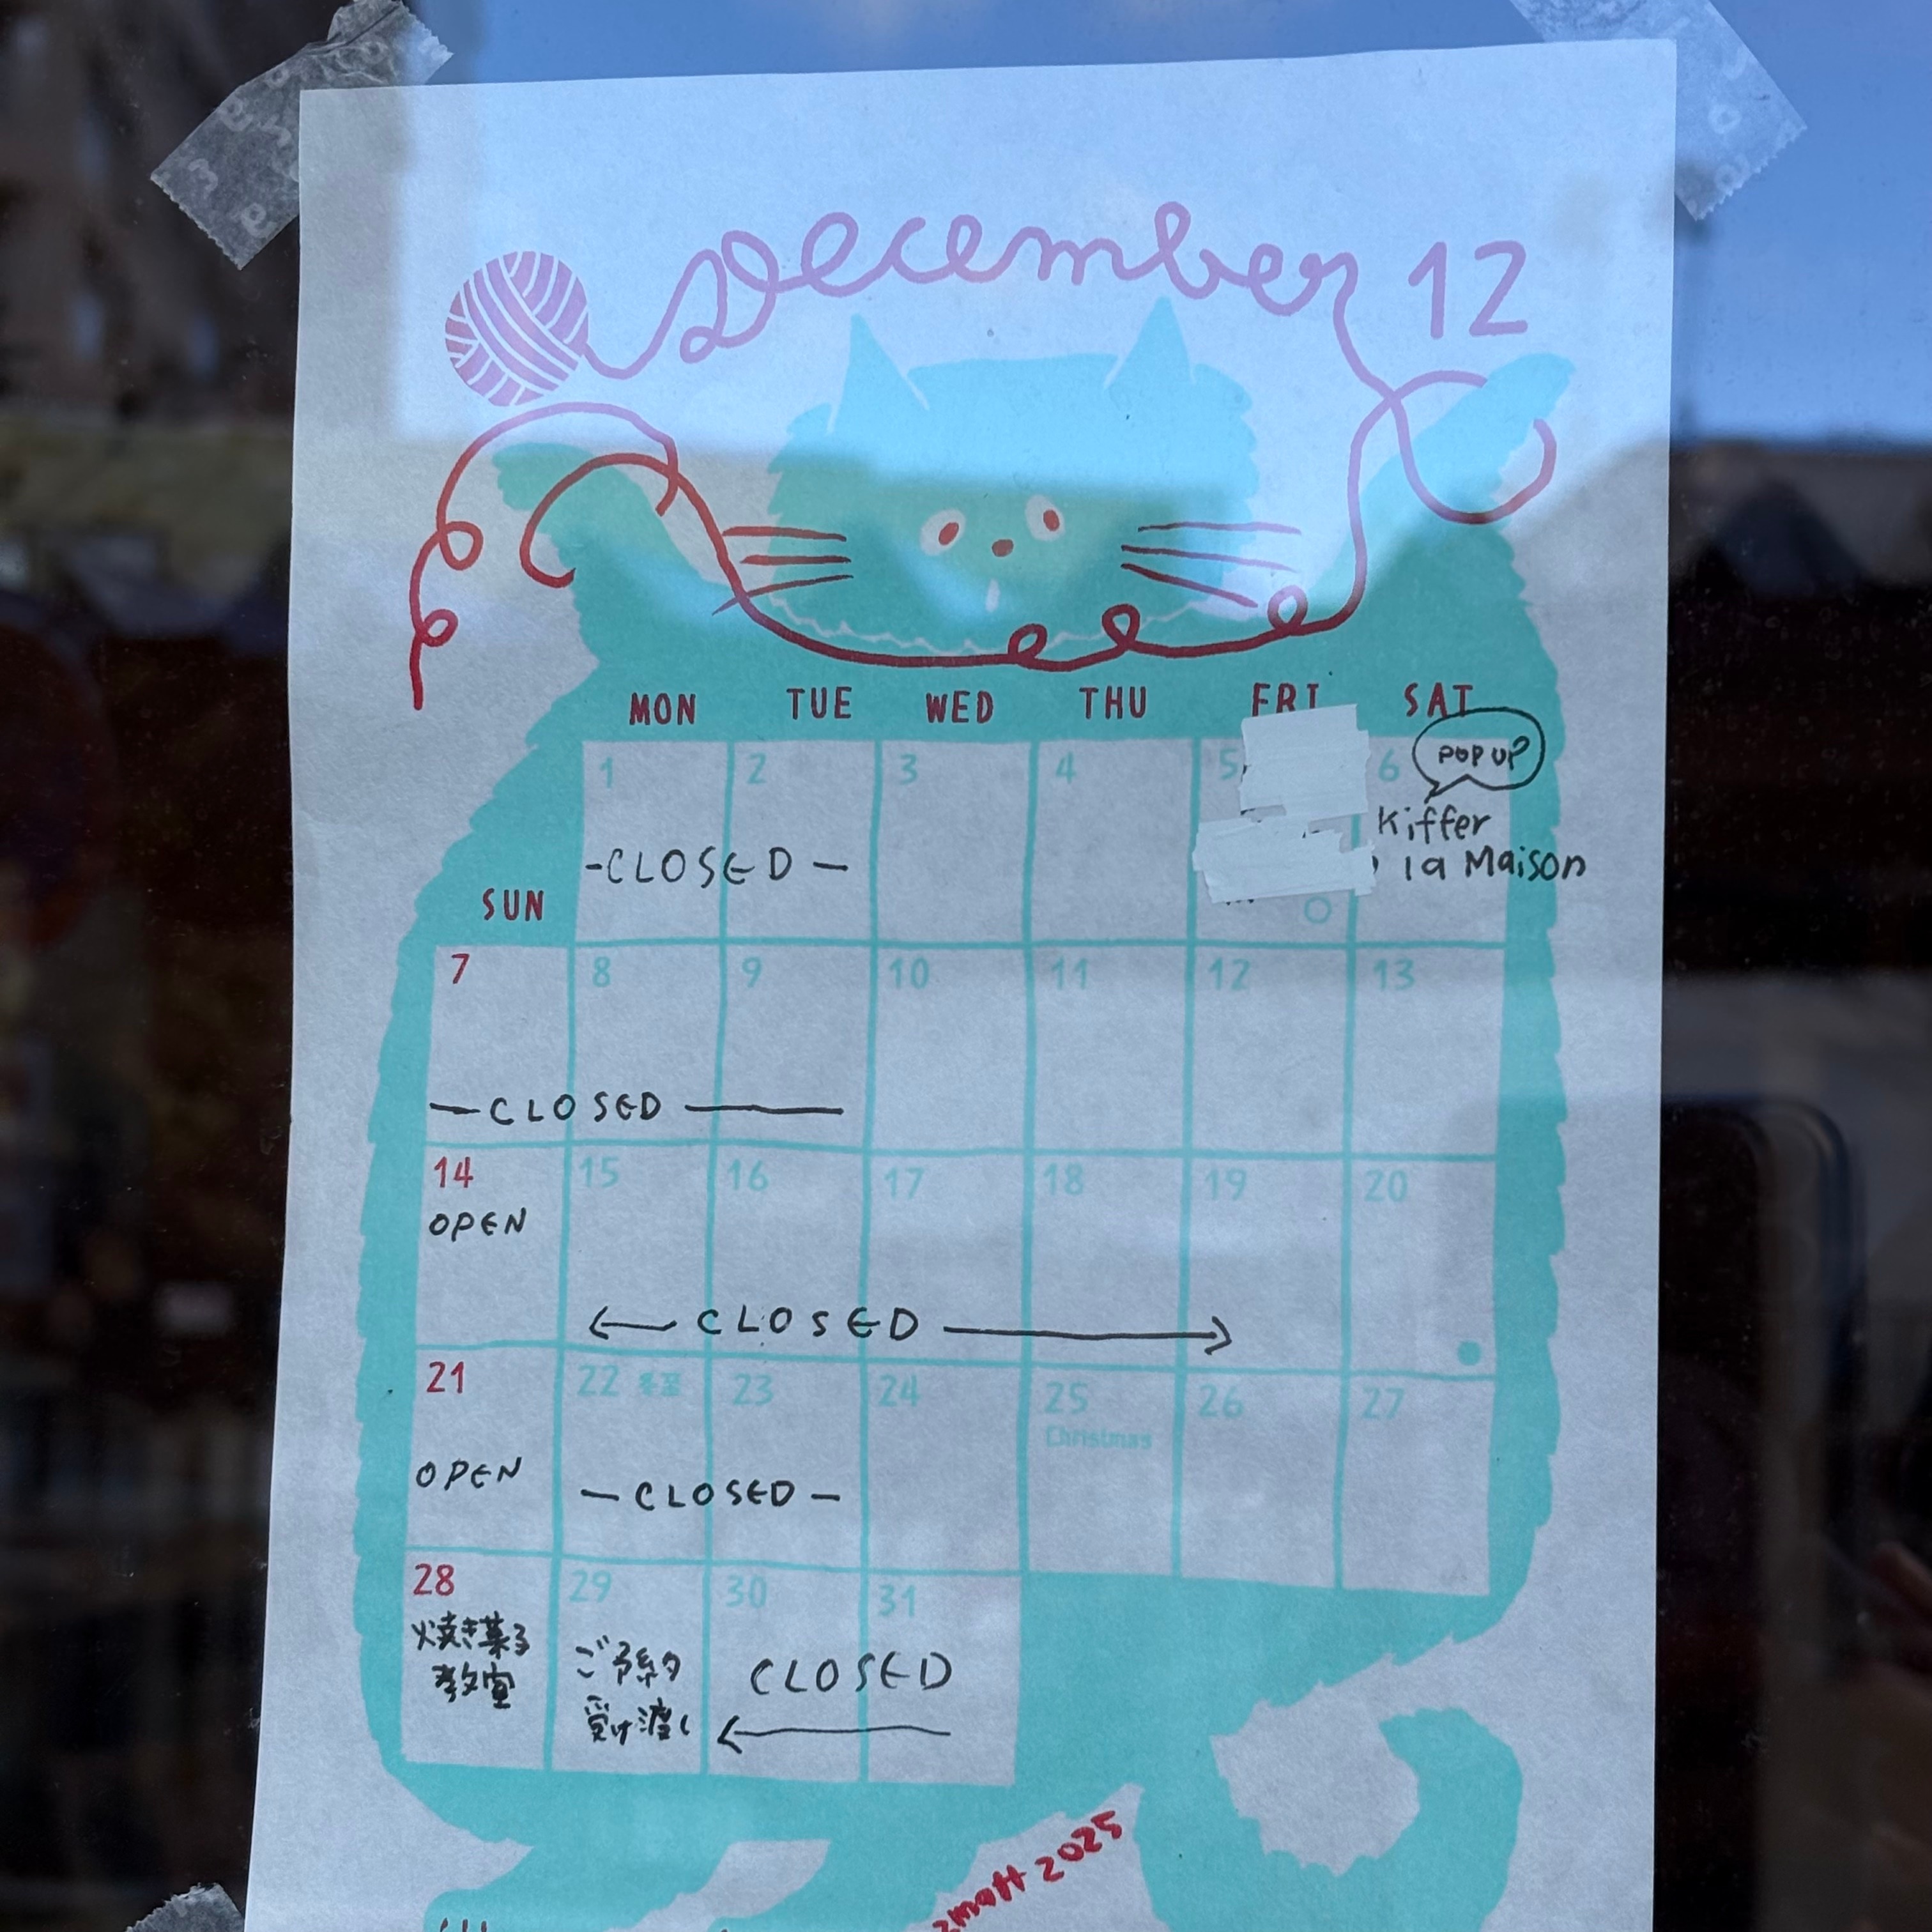 December 12
MON TUE WED THU FRI SAT
SUN
1 2 3 4 5 6
POP UP
Kiffer
la Maison
-CLOSED-
7 8 9 10 11 12 13
-CLOSED-
14 15 16 17 18 19 20
OPEN
CLOSED
21 22 冬至 23 24 25 26 27
Christmas
OPEN
-CLOSED-
28 29 30 31
焼き菓子
教室
ご予約
受け渡し
CLOSED
2025